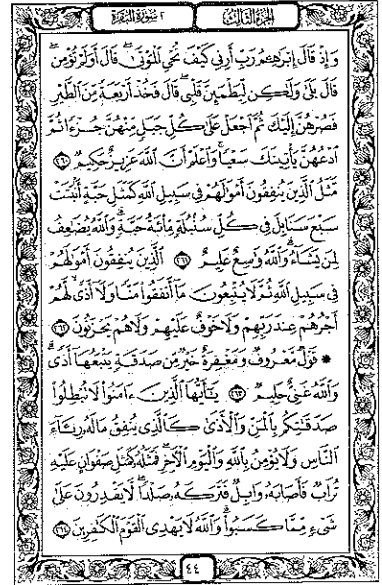 الجزء الثالث
٢ سورة البقرة
وَإِذْ قَالَ إِبْرَٰهِـۧمُ رَبِّ أَرِنِى كَيْفَ تُحْىِ ٱلْمَوْتَىٰ ۖ قَالَ أَوَلَمْ تُؤْمِن ۖ
قَالَ بَلَىٰ وَلَـٰكِن لِّيَطْمَئِنَّ قَلْبِى ۖ قَالَ فَخُذْ أَرْبَعَةً مِّنَ ٱلطَّيْرِ
فَصُرْهُنَّ إِلَيْكَ ثُمَّ ٱجْعَلْ عَلَىٰ كُلِّ جَبَلٍ مِّنْهُنَّ جُزْءًا ثُمَّ
ٱدْعُهُنَّ يَأْتِينَكَ سَعْيًا ۚ وَٱعْلَمْ أَنَّ ٱللَّهَ عَزِيزٌ حَكِيمٌ ٢٦٠
مَّثَلُ ٱلَّذِينَ يُنفِقُونَ أَمْوَٰلَهُمْ فِى سَبِيلِ ٱللَّهِ كَمَثَلِ حَبَّةٍ أَنۢبَتَتْ
سَبْعَ سَنَابِلَ فِى كُلِّ سُنۢبُلَةٍ مِّا۟ئَةُ حَبَّةٍ ۗ وَٱللَّهُ يُضَـٰعِفُ
لِمَن يَشَآءُ ۗ وَٱللَّهُ وَٰسِعٌ عَلِيمٌ ٢٦١ ٱلَّذِينَ يُنفِقُونَ أَمْوَٰلَهُمْ
فِى سَبِيلِ ٱللَّهِ ثُمَّ لَا يُتْبِعُونَ مَآ أَنفَقُوا۟ مَنًّا وَلَآ أَذًى ۙ لَّهُمْ
أَجْرُهُمْ عِندَ رَبِّهِمْ وَلَا خَوْفٌ عَلَيْهِمْ وَلَا هُمْ يَحْزَنُونَ ٢٦٢
* قَوْلٌ مَّعْرُوفٌ وَمَغْفِرَةٌ خَيْرٌ مِّن صَدَقَةٍ يَتْبَعُهَآ أَذًى ۗ
وَٱللَّهُ غَنِىٌّ حَلِيمٌ ٢٦٣ يَـٰٓأَيُّهَا ٱلَّذِينَ ءَامَنُوا۟ لَا تُبْطِلُوا۟
صَدَقَـٰتِكُم بِٱلْمَنِّ وَٱلْأَذَىٰ كَٱلَّذِى يُنفِقُ مَالَهُۥ رِئَآءَ
ٱلنَّاسِ وَلَا يُؤْمِنُ بِٱللَّهِ وَٱلْيَوْمِ ٱلْـَٔاخِرِ ۖ فَمَثَلُهُۥ كَمَثَلِ صَفْوَانٍ عَلَيْهِ
تُرَابٌ فَأَصَابَهُۥ وَابِلٌ فَتَرَكَهُۥ صَلْدًا ۖ لَّا يَقْدِرُونَ عَلَىٰ
شَىْءٍ مِّمَّا كَسَبُوا۟ ۗ وَٱللَّهُ لَا يَهْدِى ٱلْقَوْمَ ٱلْكَـٰفِرِينَ ٢٦٤
٤٤